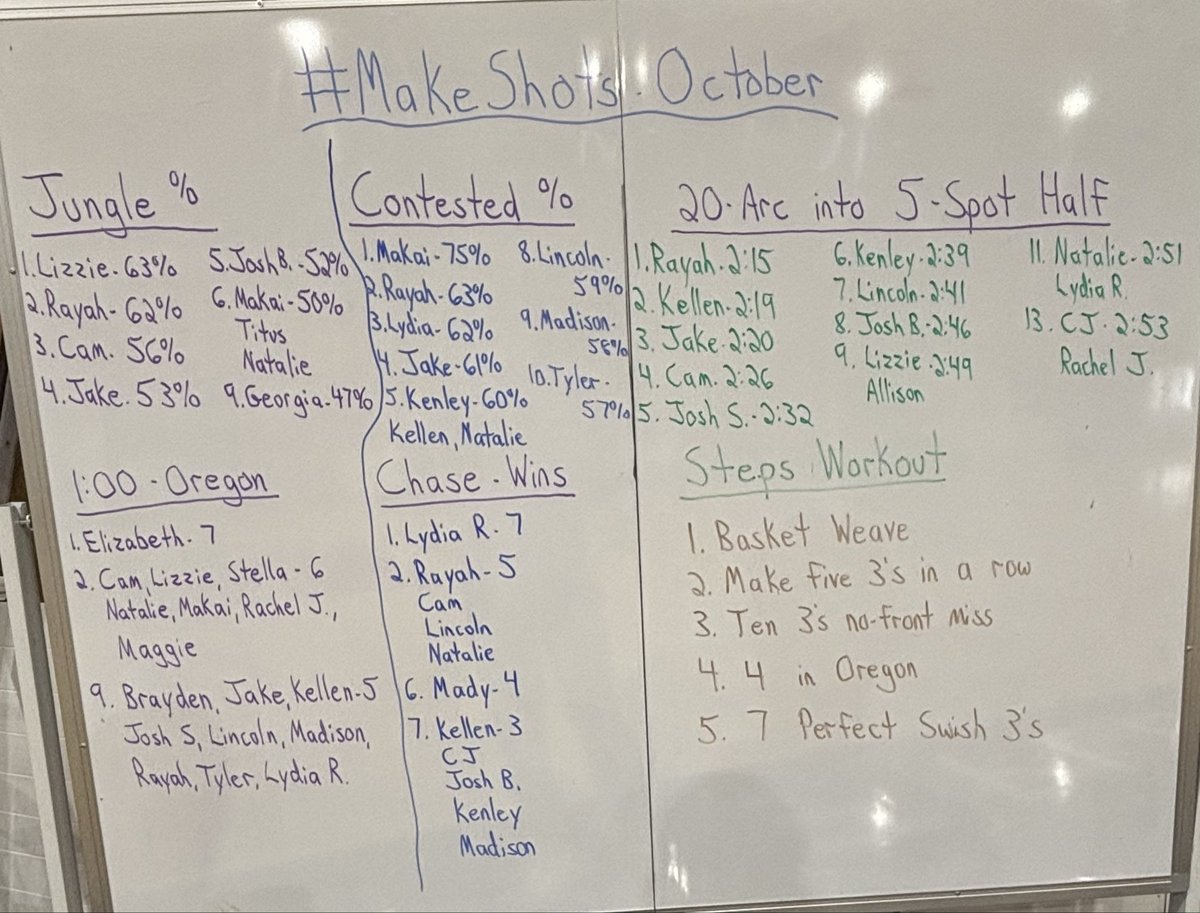 #MakeShots. October
Jungle %
1. Lizzie- 63%
2. Rayah- 62%
3. Cam. 56%
4. Jake. 53%
5. Josh B. - 52%
6. Makai- 50%
Titus
Natalie
9. Georgia- 47%
Contested %
1. Makai- 75%
2. Rayah- 63%
3. Lydia- 62%
4. Jake- 61%
5. Kenley- 60%
Kellen, Natalie
8. Lincoln-
59%
9. Madison-
58%
10. Tyler-
57%
20-Arc into 5-Spot Half
1. Rayah. 2:15
2. Kellen- 2:19
3. Jake. 2:20
4. Cam. 2:26
5. Josh S. - 2:32
6. Kenley- 2:39
7. Lincoln- 2:41
8. Josh B. - 2:46
9. Lizzie. 2:49
Allison
11. Natalie- 2:51
Lydia R.
13. CJ. 2:53
Rachel J.
1:00 - Oregon
1. Elizabeth- 7
2. Cam, Lizzie, Stella - 6
Natalie, Makai, Rachel J.,
Maggie
9. Brayden, Jake, Kellen-5
Josh S, Lincoln, Madison,
Rayah, Tyler, Lydia R.
Chase - Wins
1. Lydia R. 7
2. Rayah- 5
Cam
Lincoln
Natalie
6. Mady- 4
7. Kellen- 3
CJ
Josh B.
Kenley
Madison
Steps Workout
1. Basket Weave
2. Make five 3's in a row
3. Ten 3's no-front miss
4. 4 in Oregon
5. 7 Perfect Swish 3's